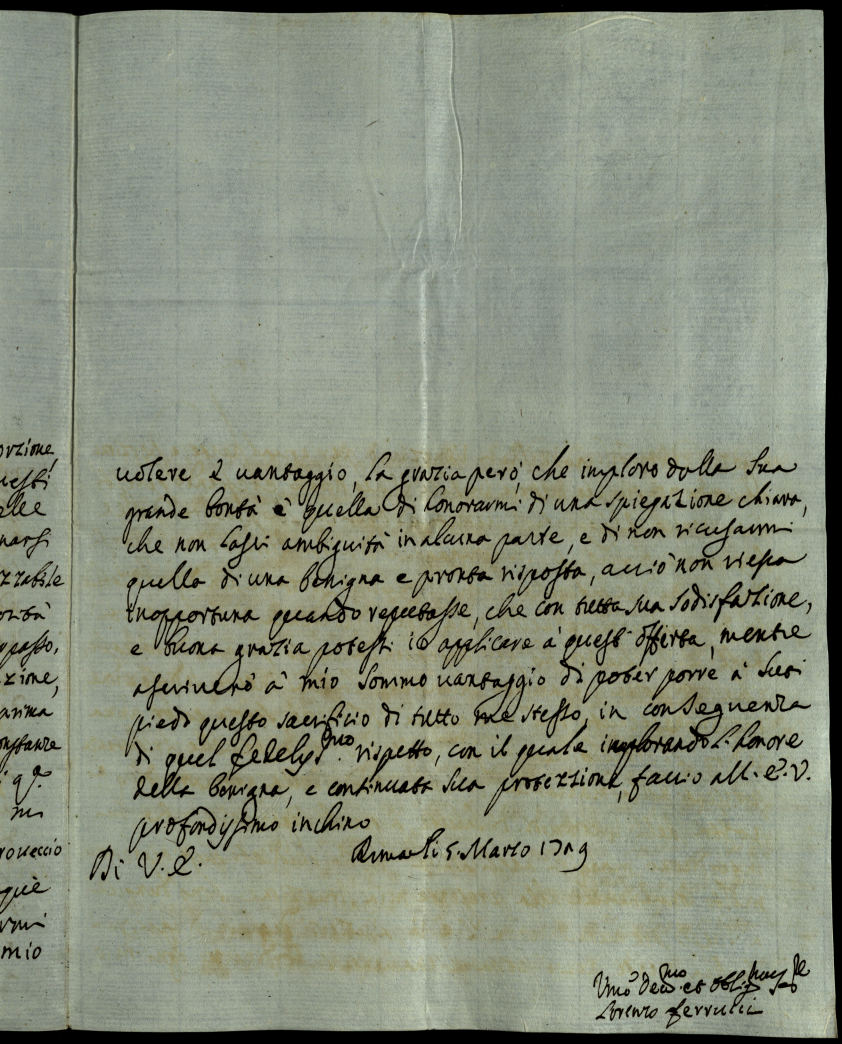 orzione,
uesti
elle
narsi
zzabile
orità
passo,
zione,
anima
onstanze
mi
roueccio
què
armi
mio
uolere è uantaggio, la grazia però, che imploro dalla sua
grande bontà è quella di honorarmi di una spiegazione chiara,
che non lassi ambiguità in alcuna parte, e di non ricusarmi
quella di una benigna e pronta risposta, acciò non riesca
inopportuna quando reputasse, che con tutta sua sodisfazione,
e buona grazia potessi io applicare à quest' offerta, mentre
ascriuerò à mio sommo uantaggio di poter porre à suoi
piedi questo sacrificio di tutto me stesso, in conseguenza
di quel fedeliss.mo rispetto, con il quale implorando l'honore
della benigna, e continuata sua protezzione, faccio all' E. V.
profondissimo inchino
Di V. E. Roma li 5 Marzo
Um.o deu.mo et obblig.mo
Lorenzo Ferrucci